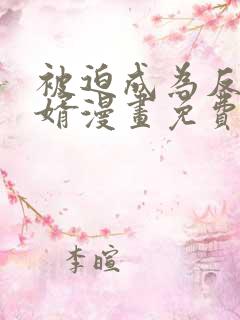 被迫成為反
婿漫畫免費
李暄